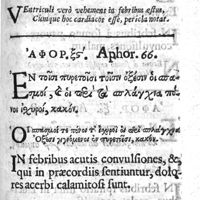 Ventriculi verò vehemens in febribus æstus,
Cùmque hoc cardiacos esse, pericla notat.
ΑΦΟΡ. ξϛ. Aphor. 66.
ΕΝ τοῖσι πυρετοῖσι τοῖσιν ὀξέσιν οἱ σπα-
σμοὶ, καὶ οἱ περὶ τὰ σπλάγχνα πό-
νοι ἰσχυροὶ, κακόν.
σπασμὸς τε πόνος τ' ἰσχυρὸς περὶ σπλάγχνα
Ὀξέσι πυρετοῖσι, κακόν.
IN febribus acutis convulsiones, &
qui in præcordiis sentiuntur, dolo-
res acerbi calamitosi sunt.